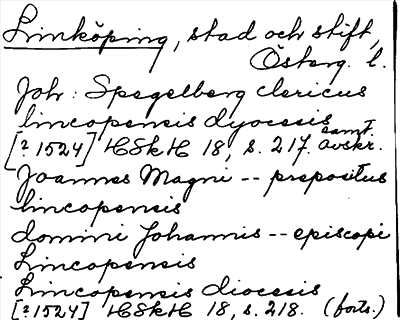 Linköping, stad och stift,
Österg. l.
Joh: Spegelberg clericus
lincopensis dyocesis
[? 1524] HSkH 18, s. 217. samt. avskr.
Joannes Magni -- prepositus
lincopensis
domini Johannis -- episcopi
Lincopensis
Lincopensis diocesis
[? 1524] HSkH 18, s. 218. (forts.)